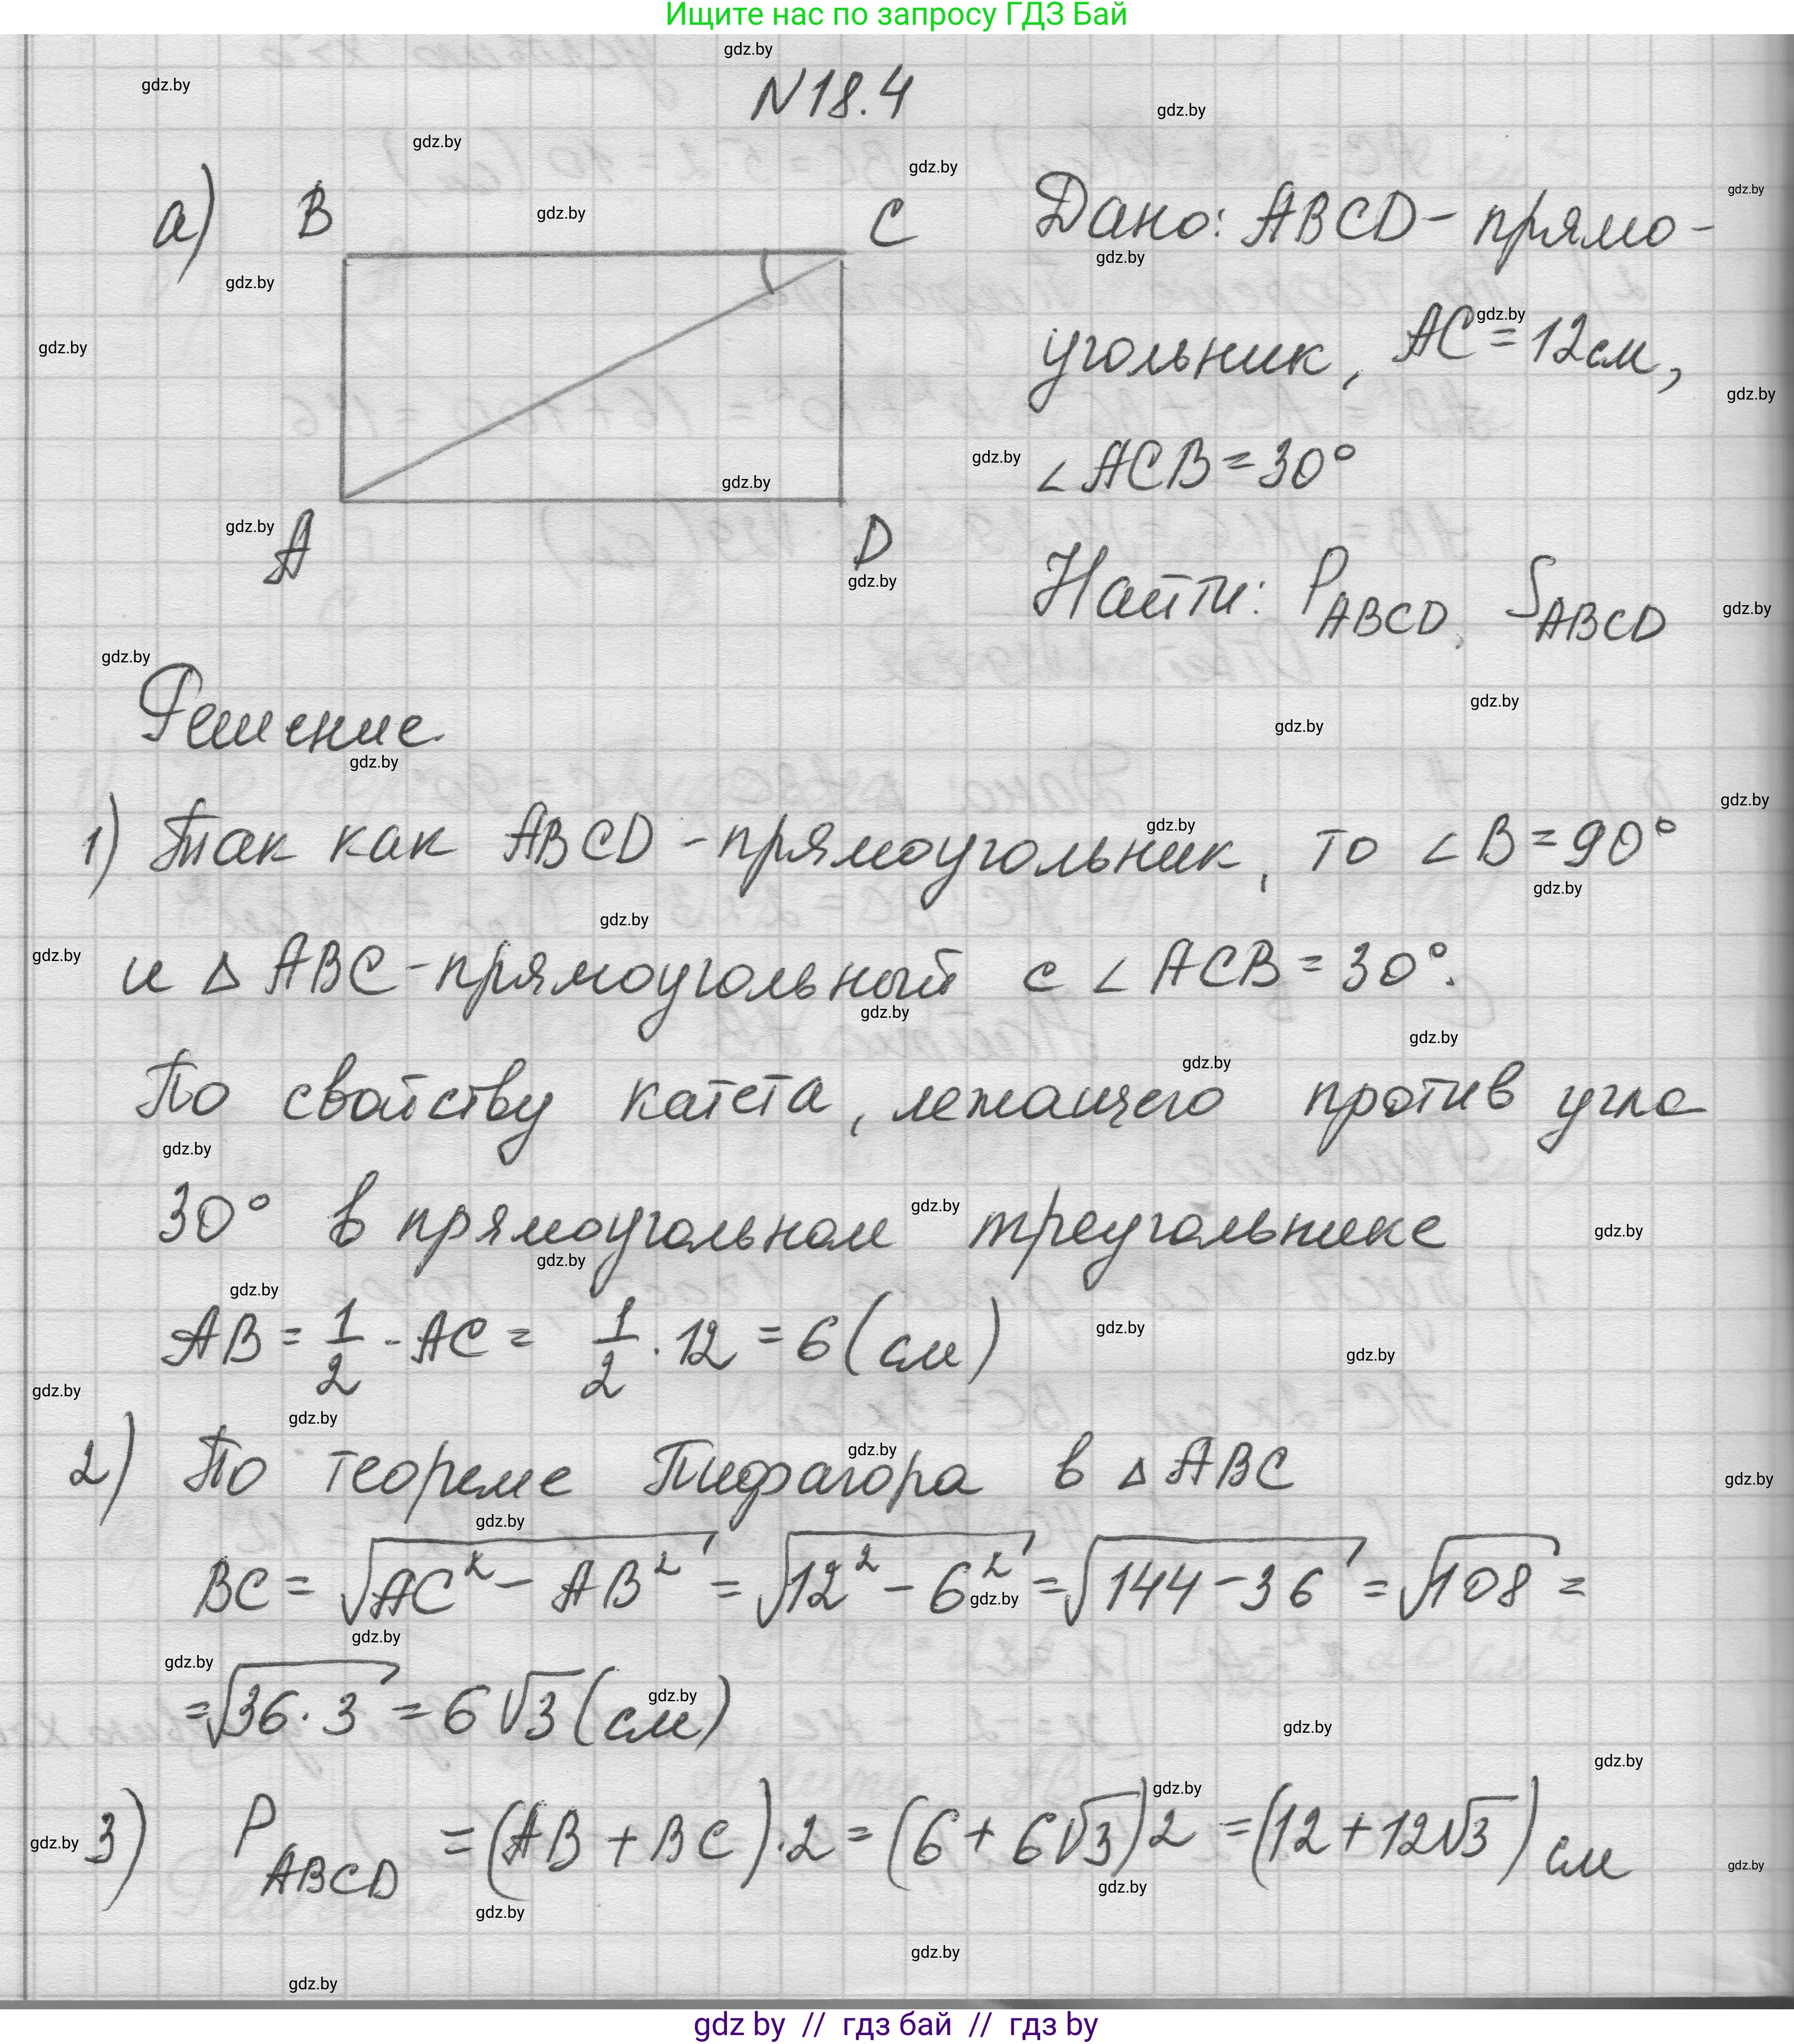 Ищите нас по запросу ГДЗ Бай
N18.4
а) B C
A D
Дано: ABCD - прямо-
угольник, AC = 12см,
∠ACB = 30°
Найти: P_ABCD, S_ABCD
Решение.
1) Так как ABCD - прямоугольник, то ∠B = 90°
и △ABC - прямоугольный с ∠ACB = 30°.
По свойству катета, лежащего против угла
30° в прямоугольном треугольнике
AB = 1/2 · AC = 1/2 · 12 = 6 (см)
2) По теореме Пифагора в △ABC
BC = √(AC² - AB²) = √(12² - 6²) = √(144 - 36) = √108 =
= √(36 · 3) = 6√3 (см)
3) P_ABCD = (AB + BC) · 2 = (6 + 6√3) 2 = (12 + 12√3) см
gdz by // гдз бай // гдз by